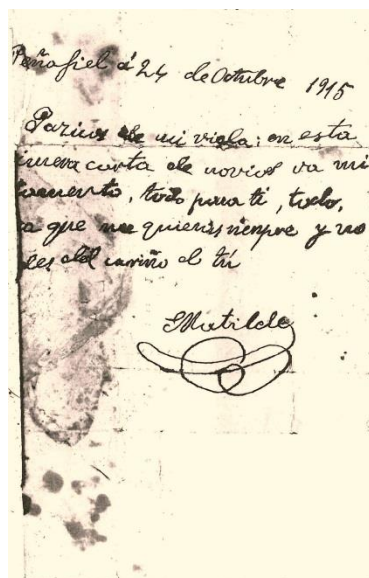 Peñafiel á 24 de Octubre 1915
de mi vida; en esta
carta de novios va mi
todo para ti, todo,
a que me quieras siempre y no
del cariño de tú
Matilde